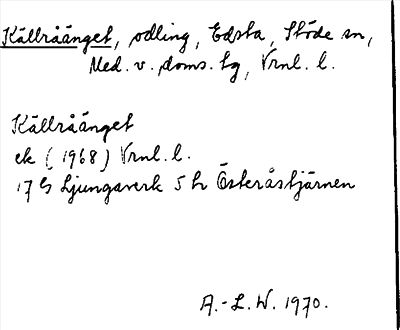 Källråänget, odling, Edsta, Stöde sn,
Med. v. doms. tg, Vrnl. l.
Källråänget
ek (1968) Vrnl. l.
17 G Ljungaverk 5 h Österåstjärnen
A.-L. W. 1970.